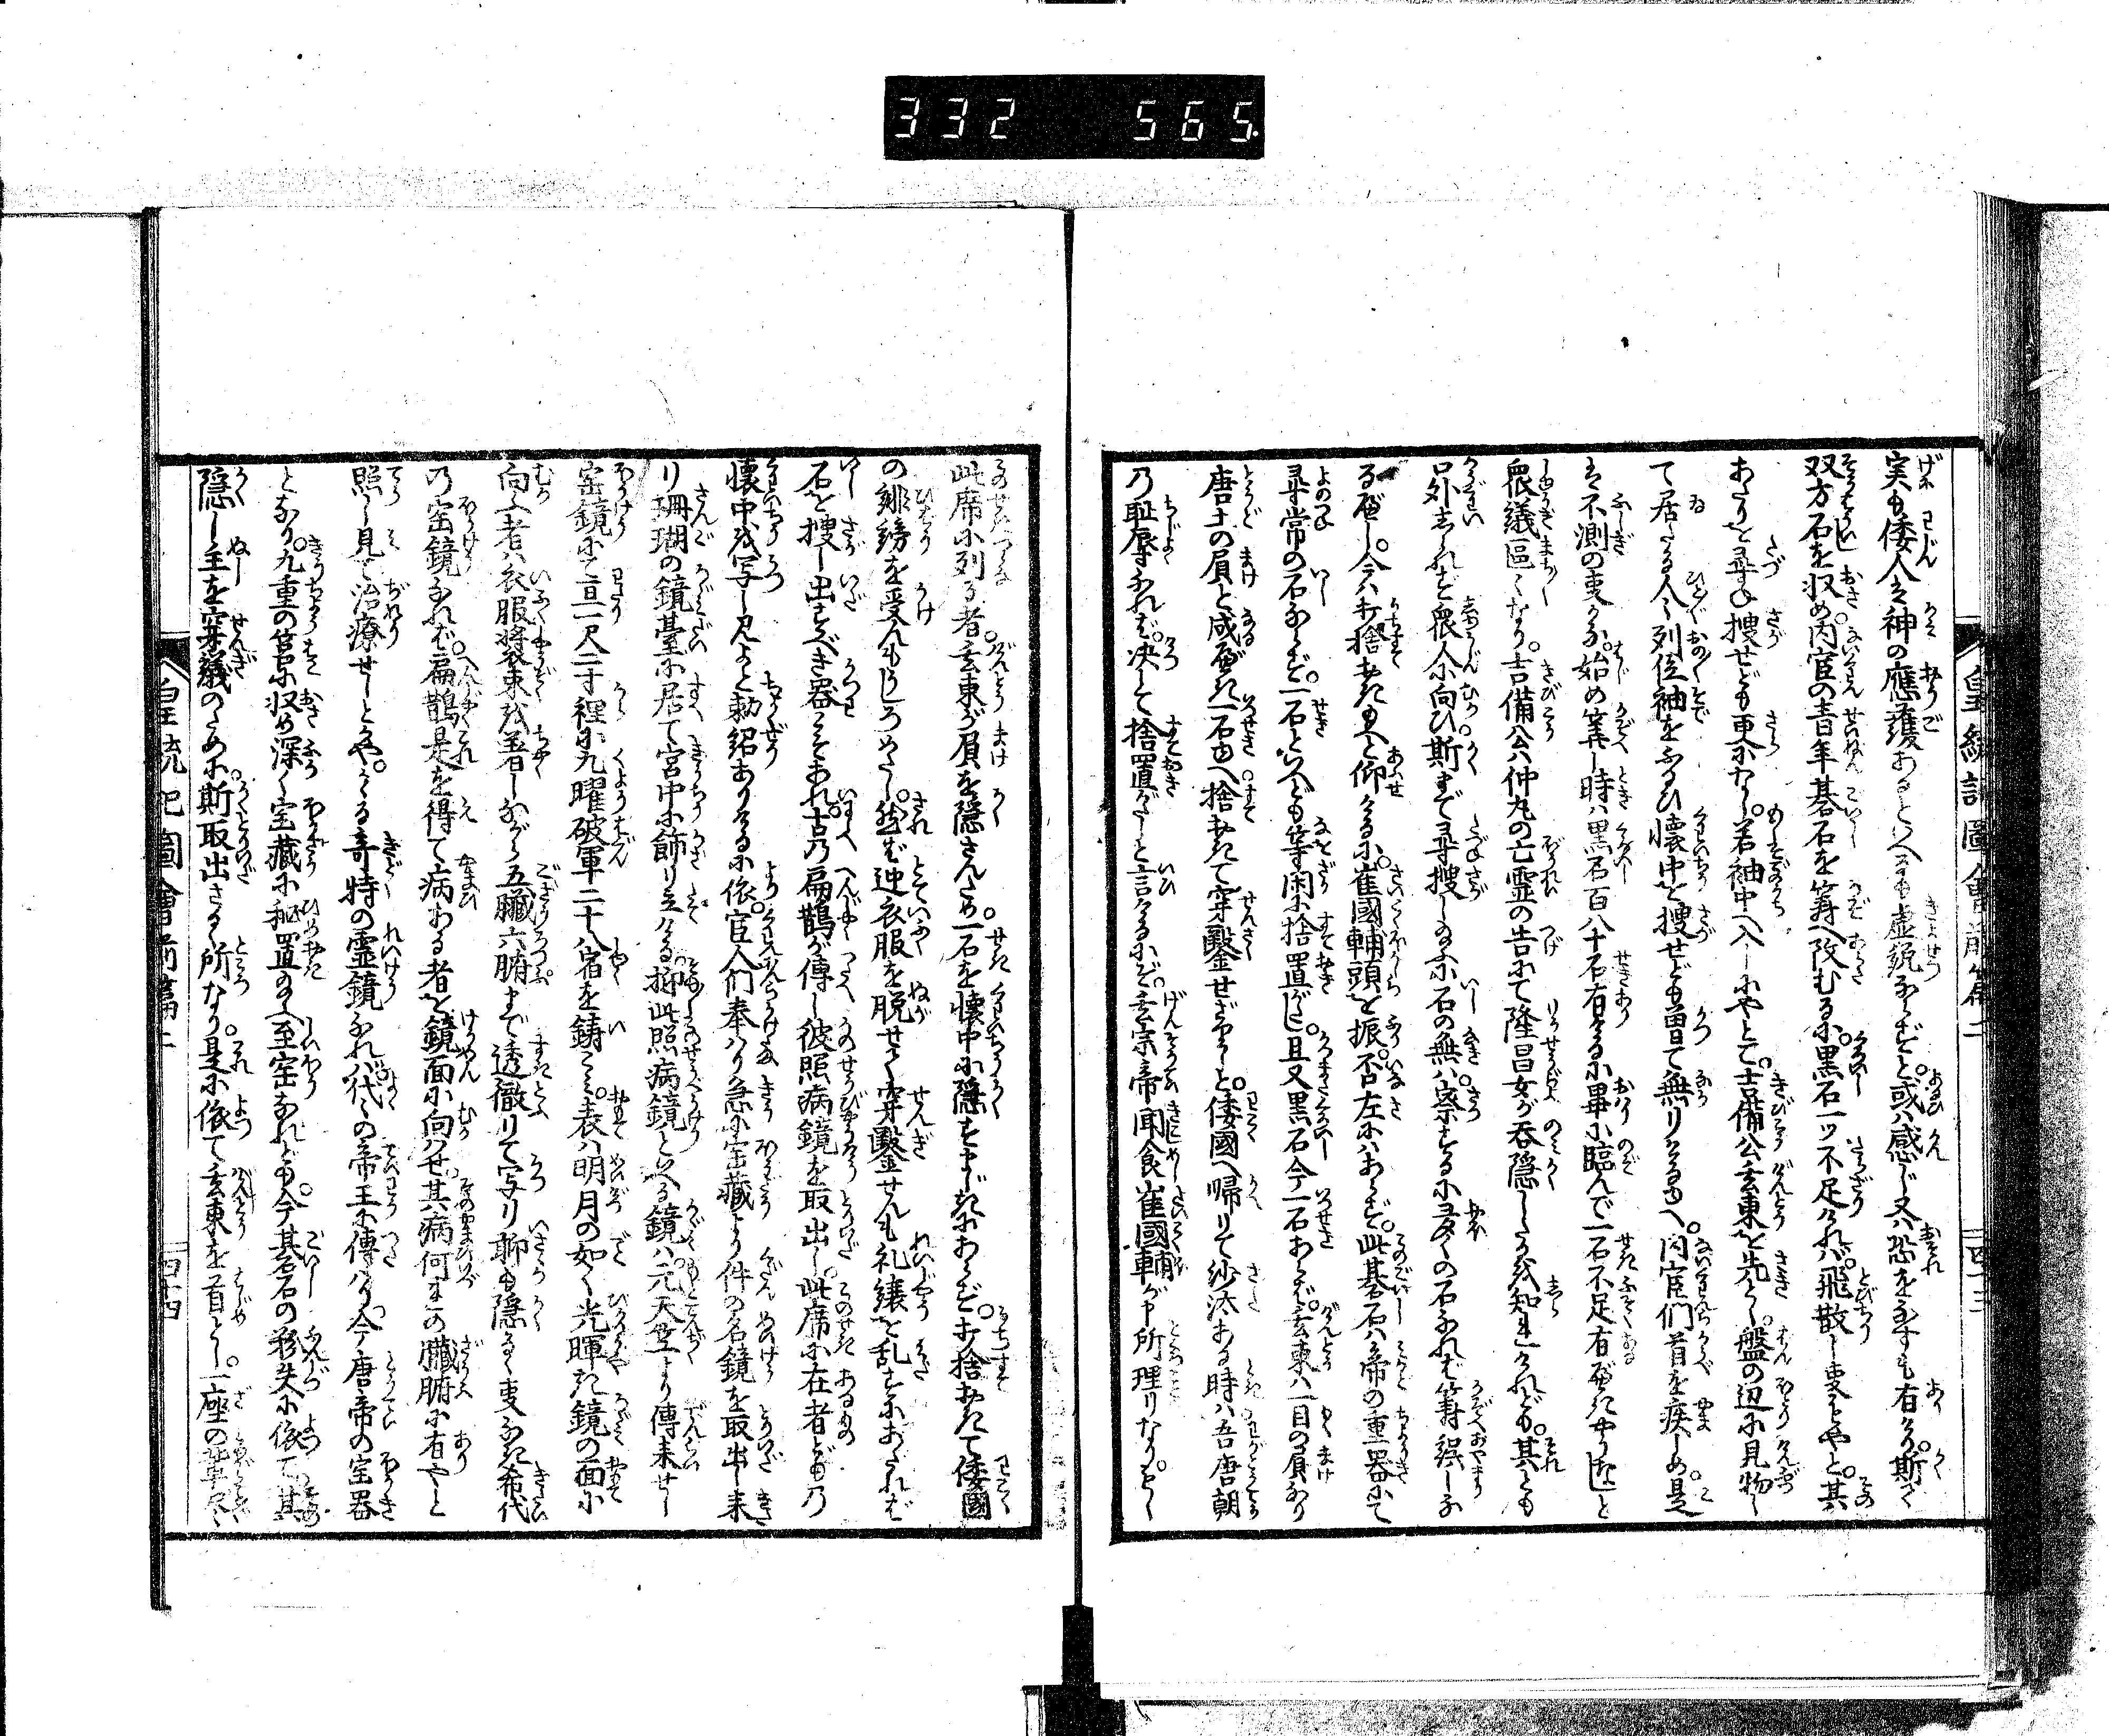 332 565
皇統記圖會前篇二 四十三
実も倭人は神の應護あるといへるも虚説ならずと。或ハ感じ又ハ恐をなすも有けり。斯て
双方石を収め。内官の青年碁石を算へ改むるに。黒石一ツ不足けれバ。飛散し事もやと。其
あたりを尋ね捜せども更になし。若袖中へ入しにやとて。吉備公玄東を先とし。盤の辺に見物し
て居たる人々列位袖をふるひ懐中を捜せども曽て無りけるゆへ。内官们首を疾しめ是
は不測の事かな。始め算し時ハ黒石百八十石有けるに畢に臨んで一石不足有べきやうなしと
衆議區々なり。吉備公ハ仲丸の亡霊の告にて隆昌女が呑隠したるを知玉へれども。其とも
口外しられず衆人に向ひ斯まで尋捜しゐるに石の無ハ。察するに多くの石なれば算誤しな
るべし。今ハ打捨おき玉へと仰けるに。崔國輔頭を振。否左にハあらず。此碁石ハ帝の重器にて
尋常の石ならず。一石といへども等閑に捨置がたし。且又黒石今一石あらば。玄東ハ一目の負なり
唐土の負と成べき一石ゆへ捨おきて穿鑿せざりしと。倭國へ帰りて沙汰ある時ハ吾唐朝
乃恥辱なれば。决して捨置がたしと言けるにぞ。玄宗帝聞食崔國輔が申所理りなり。もし
此席に列る者。玄東が負を隠さんため。一石を懐中に隠すまじきにあらず。打捨おきて倭國
の誹謗を受んもうしろめたし。然ば迚衣服を脱せて穿鑿せんも礼譲を乱すにあたれば
石を捜し出すべき器こそあれ。古乃扁鵲が傳し彼照病鏡を取出し。此席に在者どもの
懐中を写し見よと勅紹ありけるに依。官人们奉ハり急に宝藏より件の名鏡を取出し来
り珊瑚の鏡臺に居て宮中に飾り立ける。抑此照病鏡と云る鏡ハ。元天竺より傳来せし
宝鏡にて亘二尺二寸裡に九曜破軍二十八宿を鋳こミ。表ハ明月の如く光暉き鏡の面に
向ふ者ハ衣服將衣束を着しながら五臓六腑まで透徹りて写り聊も隠るゝ事なき希代
乃宝鏡なれば。扁鵲是を得て病ある者を鏡面に向ハせ。其病何まの臓腑に有やと
照し見て治療せしとかや。かゝる奇特の霊鏡なれバ。代々の帝王に傳ハり。今唐帝の宝器
となり。九重の筥に収め深く宝藏に秘置るゝ至宝なれども。今其石の紛失に依て其
隠し主を穿議のために。斯取出さるゝ所なり。是に依て玄東を首とし。一座の輩尽く
皇統記圖會前篇二 四十四